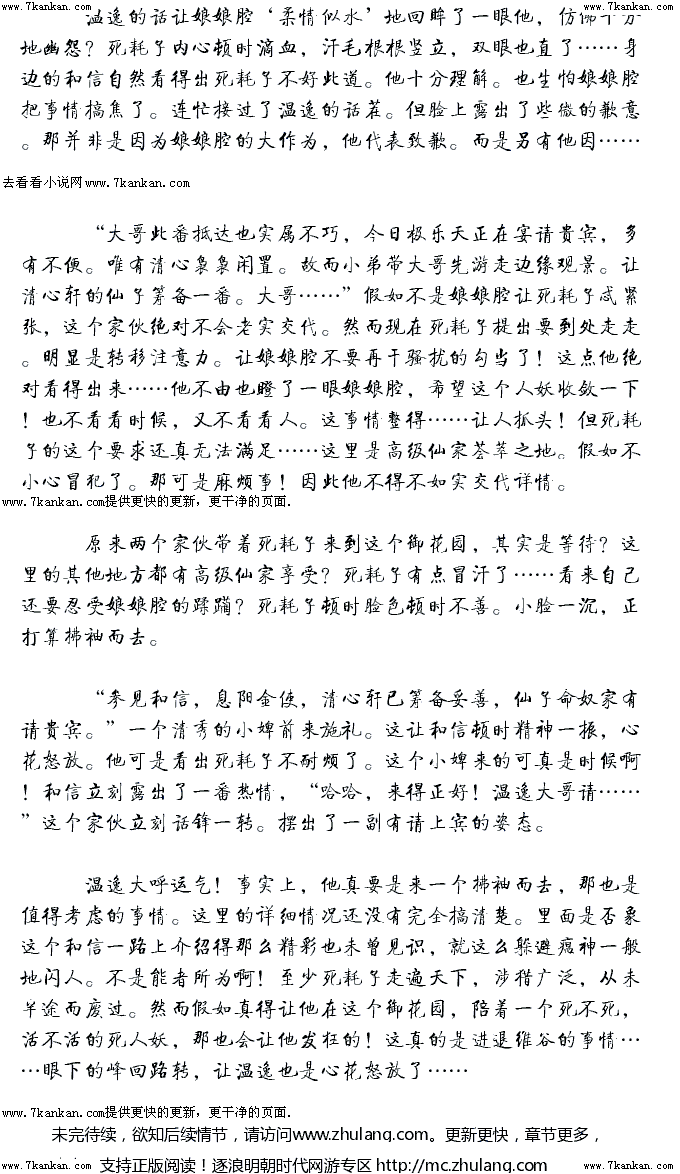 www.7kankan.com www.7kankan.com
温逸的话让娘娘腔‘柔情似水’地回眸了一眼他，仿佛十分
地幽怨？死耗子内心顿时滴血，汗毛根根竖立，双眼也直了……身
边的和信自然看得出死耗子不好此道。他十分理解。也生怕娘娘腔
把事情搞焦了。连忙接过了温逸的话茬。但脸上露出了些微的歉意
。那并非是因为娘娘腔的大作为，他代表致歉。而是另有他因……
去看看小说网www.7kankan.com
“大哥此番抵达也实属不巧，今日极乐天正在宴请贵宾，多
有不便。唯有清心袅袅闲置。故而小弟带大哥先游走边缘观景。让
清心轩的仙子筹备一番。大哥……”假如不是娘娘腔让死耗子忒紧
张，这个家伙绝对不会老实交代。然而现在死耗子提出要到处走走
。明显是转移注意力。让娘娘腔不要再干骚扰的勾当了！这点他绝
对看得出来……他不由也瞪了一眼娘娘腔，希望这个人妖收敛一下
！也不看看时候，又不看看人。这事情整得……让人抓头！但死耗
子的这个要求还真无法满足……这里是高级仙家荟萃之地。假如不
小心冒犯了。那可是麻烦事！因此他不得不如实交代详情。
www.7kankan.com提供更快的更新，更干净的页面.
原来两个家伙带着死耗子来到这个御花园，其实是等待？这
里的其他地方都有高级仙家享受？死耗子有点冒汗了……看来自己
还要忍受娘娘腔的蹂躏？死耗子顿时脸色顿时不善。小脸一沉，正
打算拂袖而去。
“参见和信，息阴金使，清心轩已筹备妥善，仙子命奴家有
请贵宾。”一个清秀的小婢前来施礼。这让和信顿时精神一振，心
花怒放。他可是看出死耗子不耐烦了。这个小婢来的可真是时候啊
！和信立刻露出了一番热情，“哈哈，来得正好！温逸大哥请……
”这个家伙立刻话锋一转。摆出了一副有请上宾的姿态。
温逸大呼运气！事实上，他真要是来一个拂袖而去，那也是
值得考虑的事情。这里的详细情况还没有完全搞清楚。里面是否象
这个和信一路上介绍得那么精彩也未曾见识，就这么躲避瘟神一般
地闪人。不是能者所为啊！至少死耗子走遍天下，涉猎广泛，从未
半途而废过。然而假如真得让他在这个御花园，陪着一个死不死，
活不活的死人妖，那也会让他发狂的！这真的是进退维谷的事情…
…眼下的峰回路转，让温逸也是心花怒放了……
www.7kankan.com提供更快的更新，更干净的页面.
未完待续，欲知后续情节，请访问www.zhulang.com。更新更快，章节更多，
www.7kankan.com 支持正版阅读！逐浪明朝时代网游专区 http://mc.zhulang.com www.7kankan.com